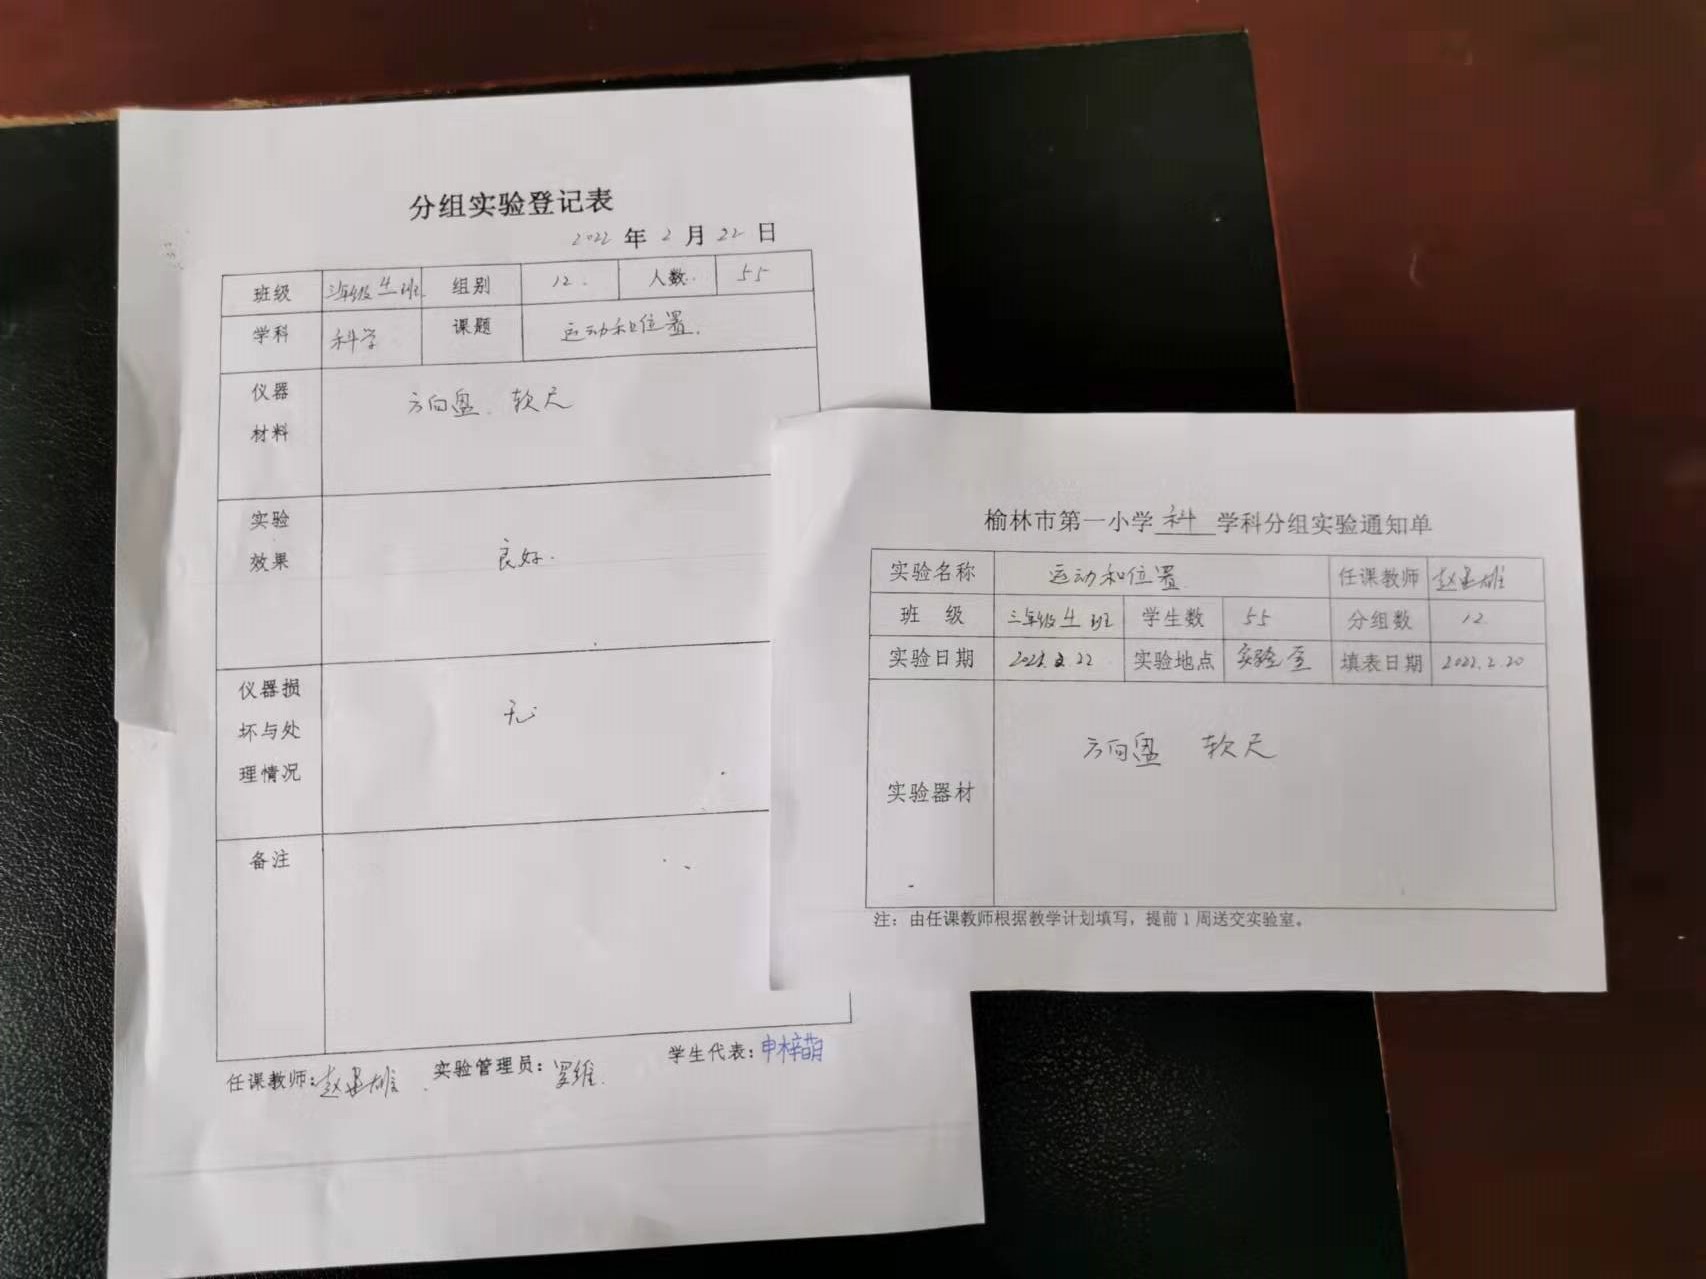 分组实验登记表
2022 年 2 月 22 日
班级 三年级4班 组别 12. 人数 55
学科 科学 课题 运动和位置.
仪器材料 方向盘、软尺
实验效果 良好.
仪器损坏与处理情况 无
备注
任课教师: 赵 雄 实验管理员: 罗维. 学生代表: 申梓萌
榆林市第一小学 科 学科分组实验通知单
实验名称 运动和位置. 任课教师 赵 雄
班 级 三年级4班 学生数 55 分组数 12
实验日期 2022.2.22 实验地点 实验室 填表日期 2022.2.20
实验器材 方向盘 软尺
注：由任课教师根据教学计划填写，提前1周送交实验室。